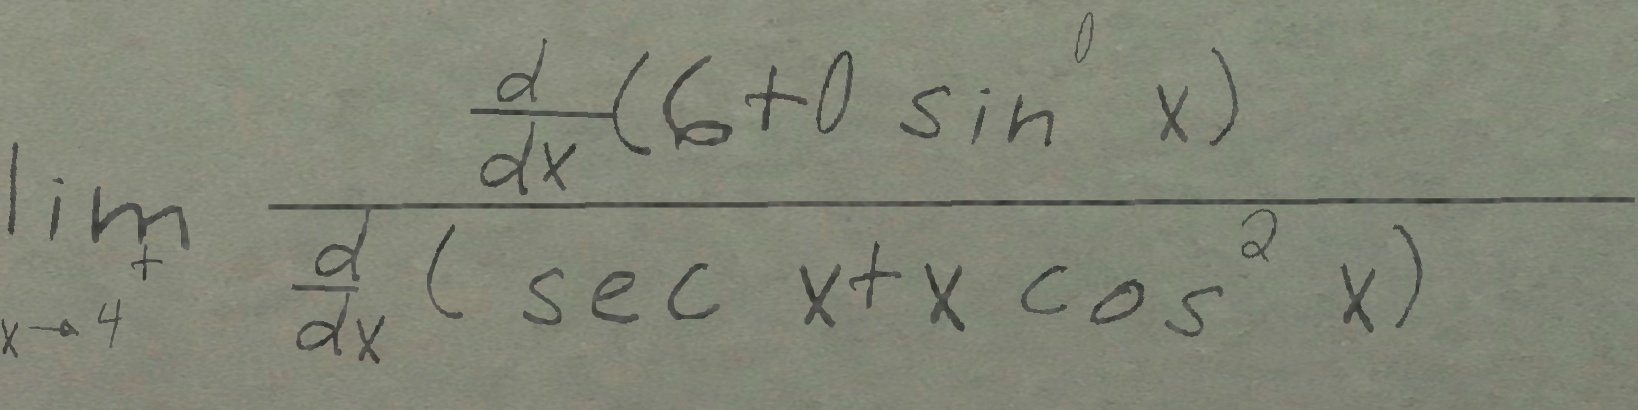 \lim_{x \to 4^+} \frac{\frac{d}{dx}(6+0 \sin^0 x)}{\frac{d}{dx}(\sec x+x \cos^2 x)}